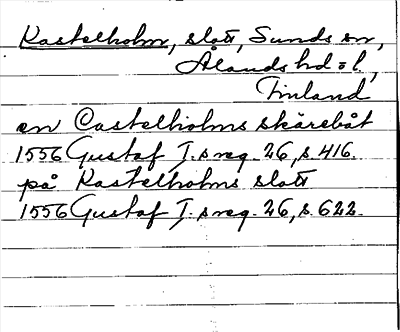 Kastelholm, slott, Sunds sn,
Ålands hd o l.,
Finland
en Castelholms skärebåt
1556 Gustaf I.s reg. 26, s. 416.
på Kastelholms slott
1556 Gustaf I.s reg. 26, s. 622.